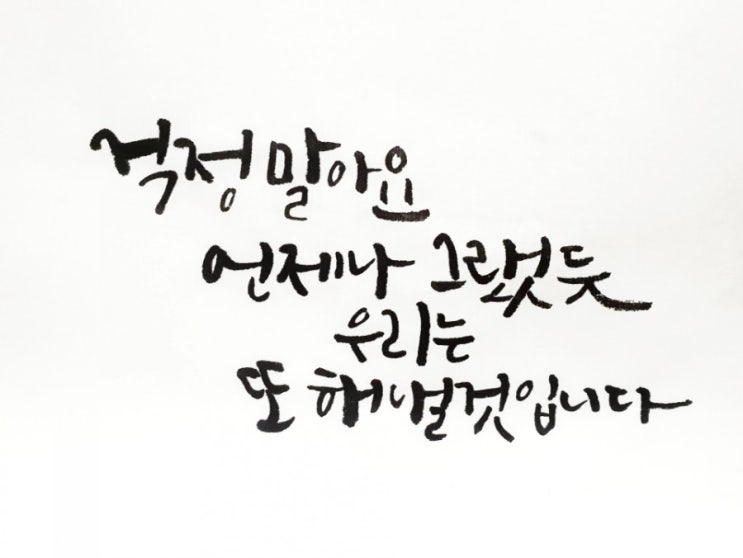 걱정 말아요
언제나 그랬듯
우리는
또 해낼것입니다